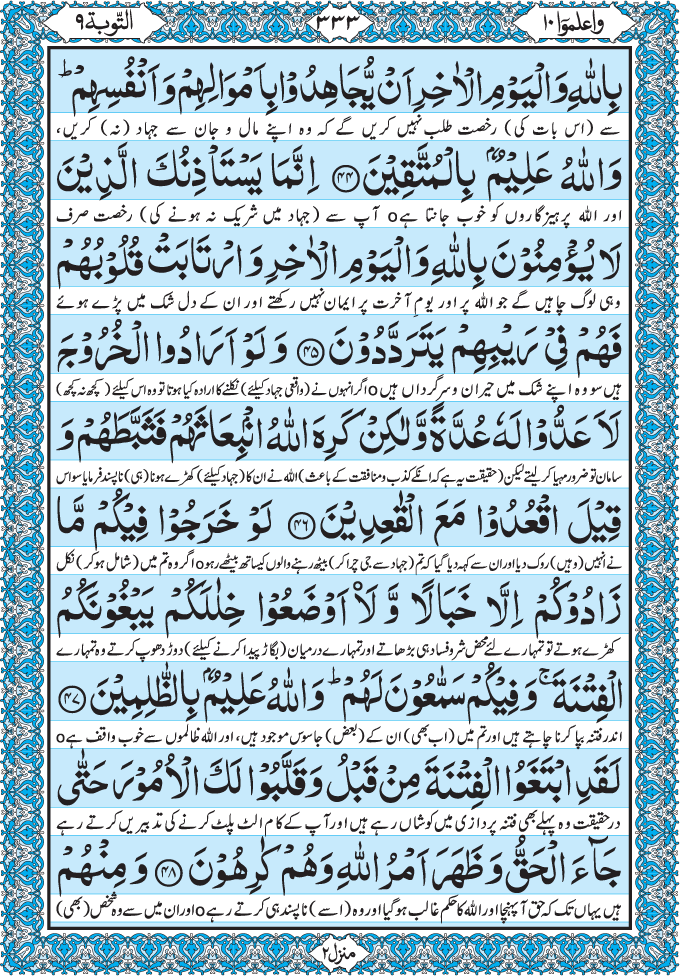 واعلموا ۱۰ ۳۳۳ التوبة ۹
بِاللّٰهِ وَالْيَوْمِ الْاٰخِرِ اَنْ يُّجَاهِدُوْا بِاَمْوَالِهِمْ وَاَنْفُسِهِمْ ؕ
سے (اس بات کی) رخصت طلب نہیں کریں گے کہ وہ اپنے مال و جان سے جہاد (نہ) کریں،
وَاللّٰهُ عَلِيْمٌۢ بِالْمُتَّقِيْنَ ﴿۴۴﴾ اِنَّمَا يَسْتَاْذِنُكَ الَّذِيْنَ
اور اللہ پرہیزگاروں کو خوب جانتا ہےo آپ سے (جہاد میں شریک نہ ہونے کی) رخصت صرف
لَا يُؤْمِنُوْنَ بِاللّٰهِ وَالْيَوْمِ الْاٰخِرِ وَارْتَابَتْ قُلُوْبُهُمْ
وہی لوگ چاہیں گے جو اللہ پر اور یومِ آخرت پر ایمان نہیں رکھتے اور ان کے دل شک میں پڑے ہوئے
فَهُمْ فِيْ رَيْبِهِمْ يَتَرَدَّدُوْنَ ﴿۴۵﴾ وَلَوْ اَرَادُوا الْخُرُوْجَ
ہیں سو وہ اپنے شک میں حیران و سرگرداں ہیںo اگر انہوں نے (واقعی جہاد کیلئے) نکلنے کا ارادہ کیا ہوتا تو وہ اس کیلئے (کچھ نہ کچھ)
لَاَعَدُّوْا لَهٗ عُدَّةً وَّلٰكِنْ كَرِهَ اللّٰهُ انْۢبِعَاثَهُمْ فَثَبَّطَهُمْ وَ
سامان تو ضرور مہیا کر لیتے لیکن (حقیقت یہ ہے کہ انکے کذب و منافقت کے باعث) اللہ نے ان کا (جہاد کیلئے) کھڑے ہونا (ہی) ناپسند فرمایا سو اس
قِيْلَ اقْعُدُوْا مَعَ الْقٰعِدِيْنَ ﴿۴۶﴾ لَوْ خَرَجُوْا فِيْكُمْ مَّا
نے انہیں (وہیں) روک دیا اور ان سے کہہ دیا گیا کہ تم (جہاد سے جی چرا کر) بیٹھ رہنے والوں کیساتھ بیٹھے رہوo اگر وہ تم میں (شامل ہو کر) نکل
زَادُوْكُمْ اِلَّا خَبَالًا وَّلَاْ اَوْضَعُوْا خِلٰلَكُمْ يَبْغُوْنَكُمُ
کھڑے ہوتے تو تمہارے لئے محض شر و فساد ہی بڑھاتے اور تمہارے درمیان (بگاڑ پیدا کرنے کیلئے) دوڑ دھوپ کرتے وہ تمہارے
الْفِتْنَةَ ۚ وَفِيْكُمْ سَمّٰعُوْنَ لَهُمْ ؕ وَاللّٰهُ عَلِيْمٌۢ بِالظّٰلِمِيْنَ ﴿۴۷﴾
اندر فتنہ بپا کرنا چاہتے ہیں اور تم میں (اب بھی) ان کے (بعض) جاسوس موجود ہیں، اور اللہ ظالموں سے خوب واقف ہےo
لَقَدِ ابْتَغَوُا الْفِتْنَةَ مِنْ قَبْلُ وَقَلَّبُوْا لَكَ الْاُمُوْرَ حَتّٰى
درحقیقت وہ پہلے بھی فتنہ پردازی میں کوشاں رہے ہیں اور آپ کے کام الٹ پلٹ کرنے کی تدبیریں کرتے رہے
جَآءَ الْحَقُّ وَظَهَرَ اَمْرُ اللّٰهِ وَهُمْ كٰرِهُوْنَ ﴿۴۸﴾ وَمِنْهُمْ
ہیں یہاں تک کہ حق آ پہنچا اور اللہ کا حکم غالب ہو گیا اور وہ (اسے) ناپسند ہی کرتے رہےo اور ان میں سے وہ شخص (بھی)
منزل ۲